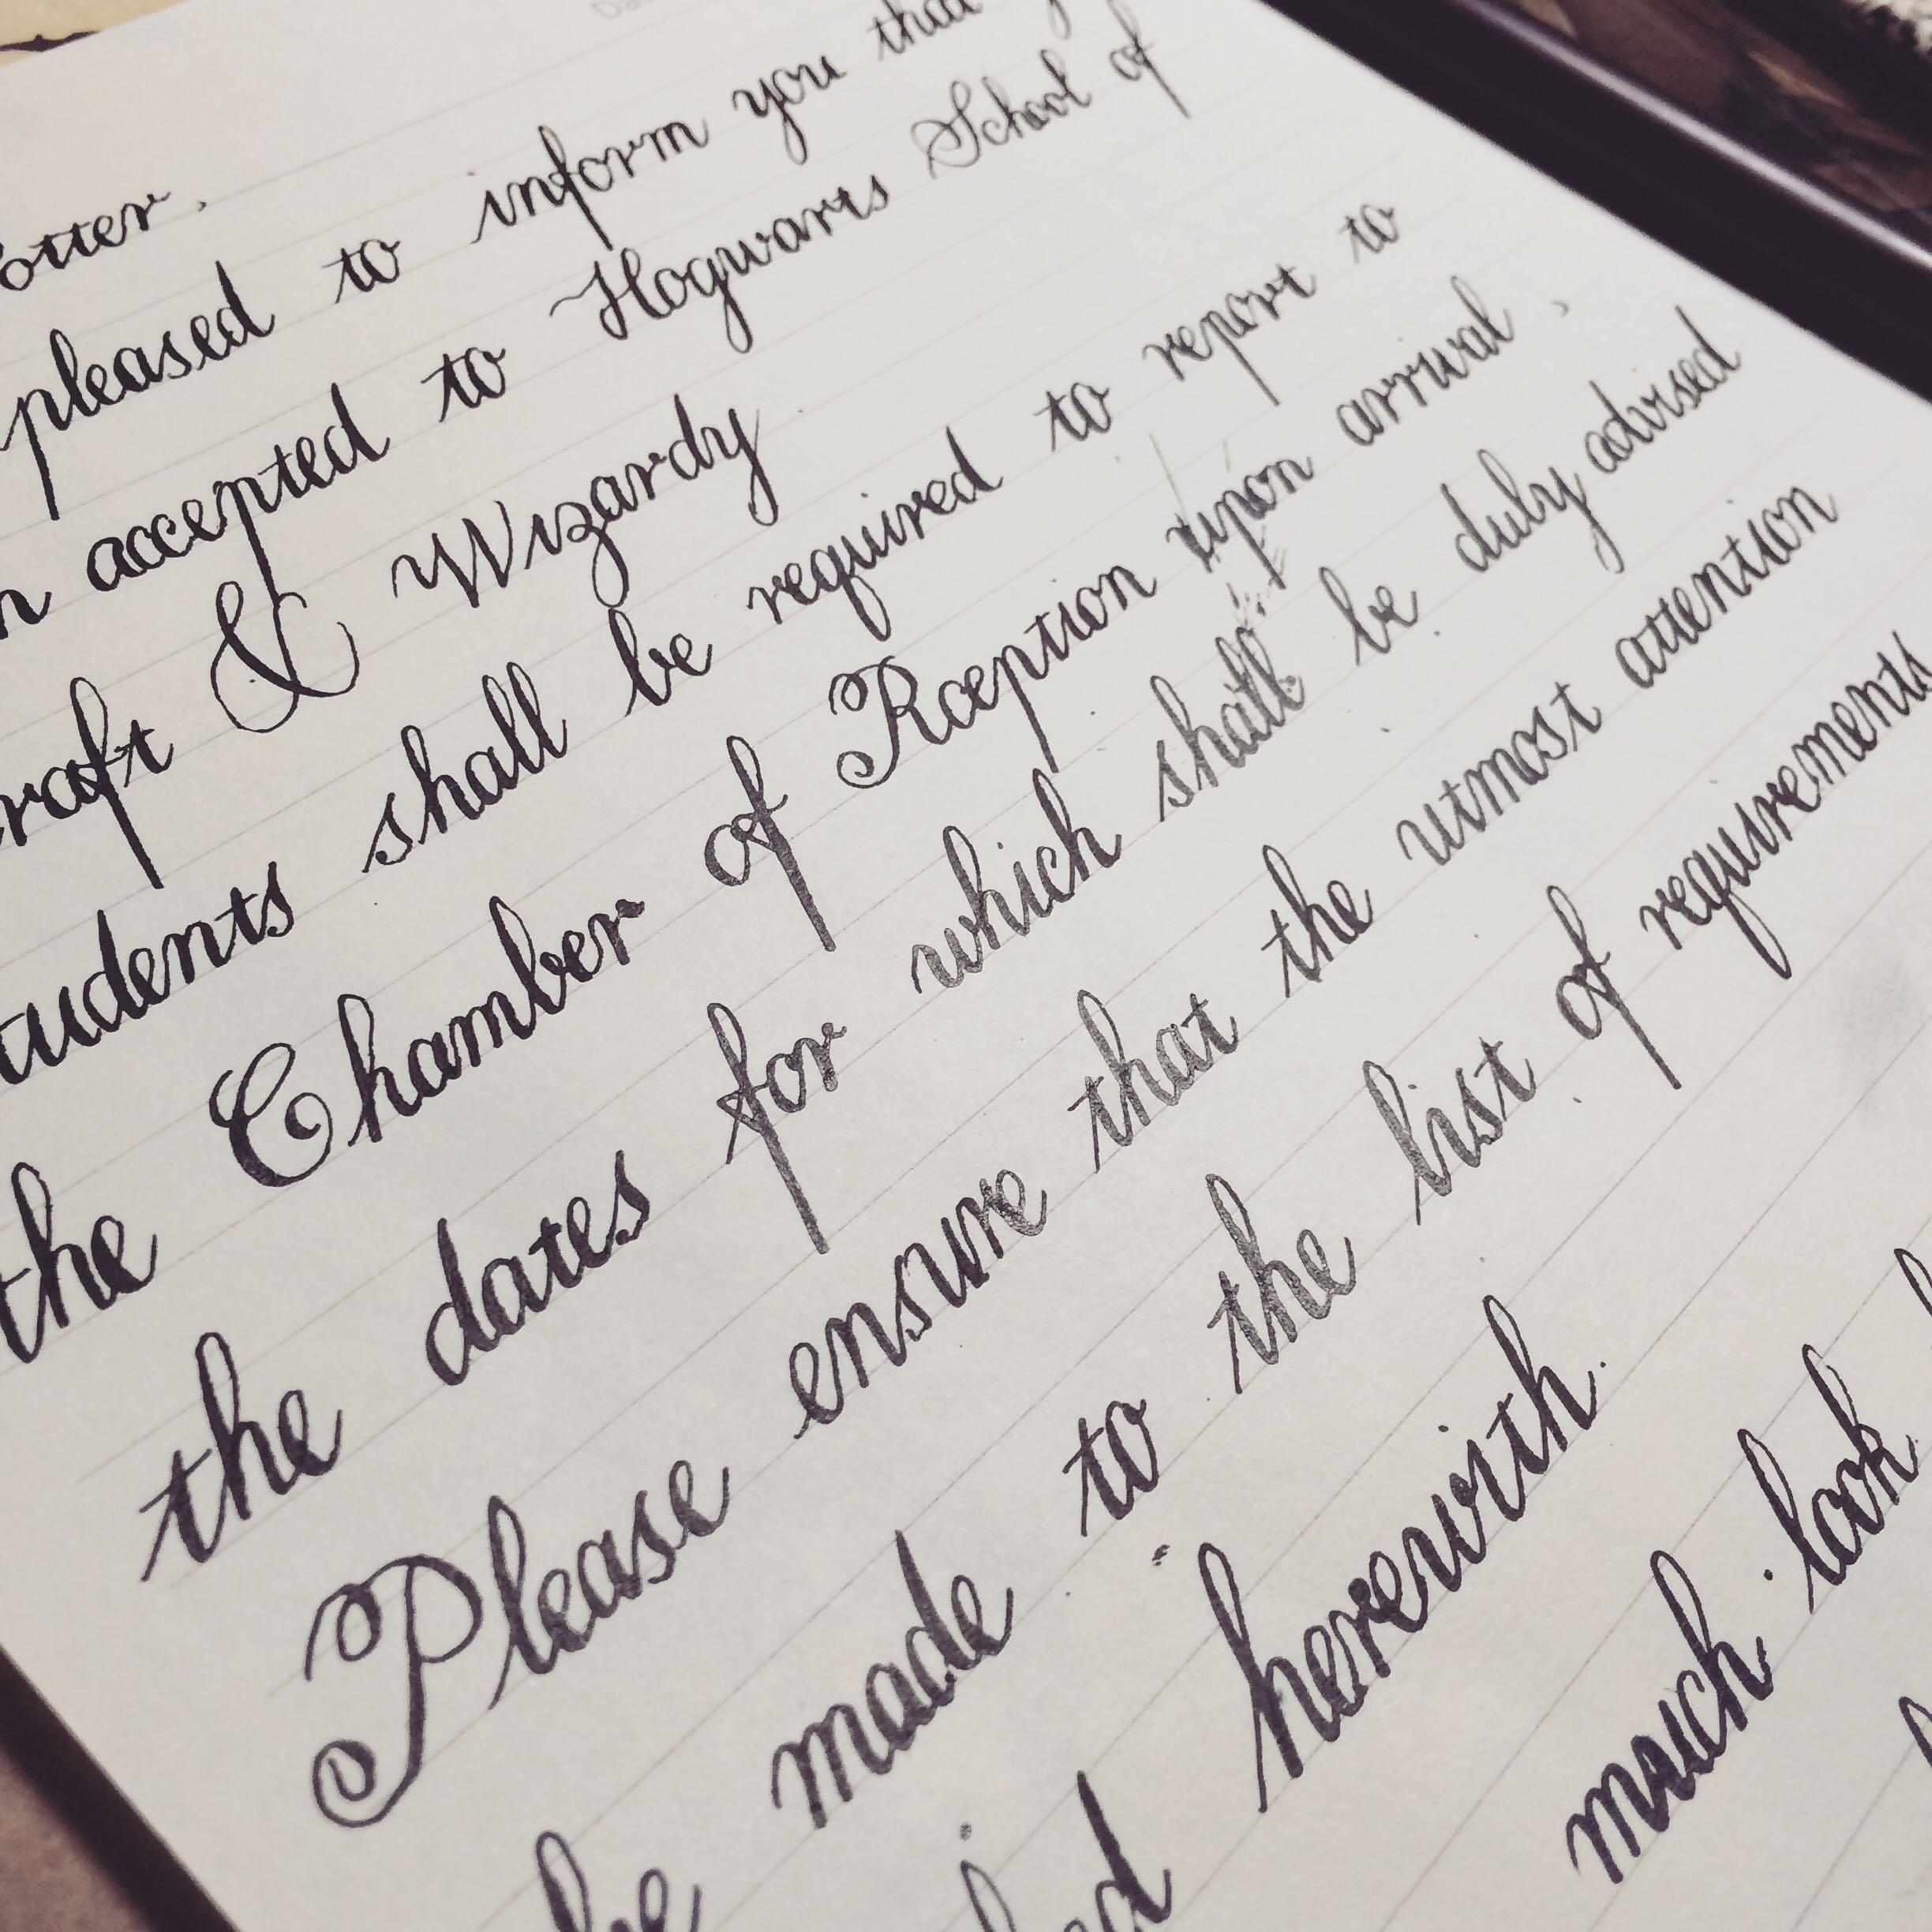 otter,
pleased to inform you that
n accepted to Hogwarts School of
raft & Wizardy
tudents shall be required to report to
the Chamber of Rception upon arrival,
the dates for which shall be duly advised
Please ensure that the utmost attention
be made to the list of requirements
ed herewith.
much look